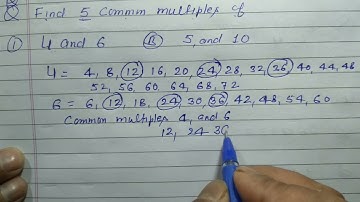 Q Find 5 Common multiples of
① 4 and 6 ⓑ 5, and 10
4 = 4, 8, 12, 16, 20, 24, 28, 32, 36, 40, 44, 48
52, 56, 60, 64, 68, 72
6 = 6, 12, 18, 24, 30, 36, 42, 48, 54, 60
Common multiples 4, and 6
12, 24 36